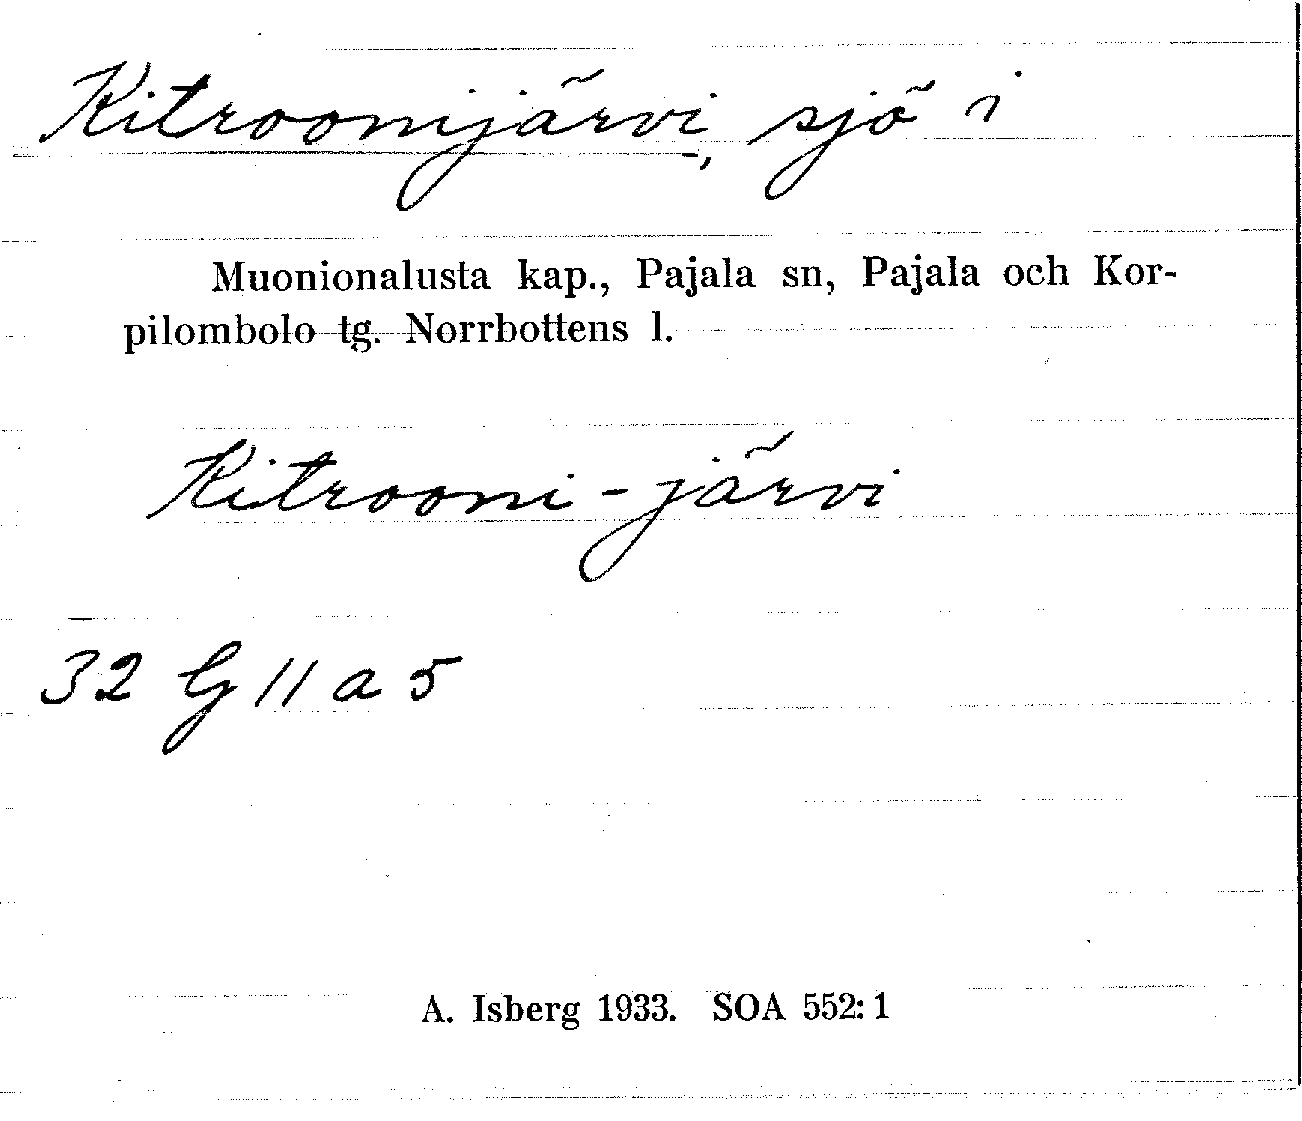 Kitroonijärvi, sjö i
Muonionalusta kap., Pajala sn, Pajala och Kor-
pilombolo tg. Norrbottens l.
Kitrooni-järvi
32 G 11 a 5
A. Isberg 1933. SOA 552:1